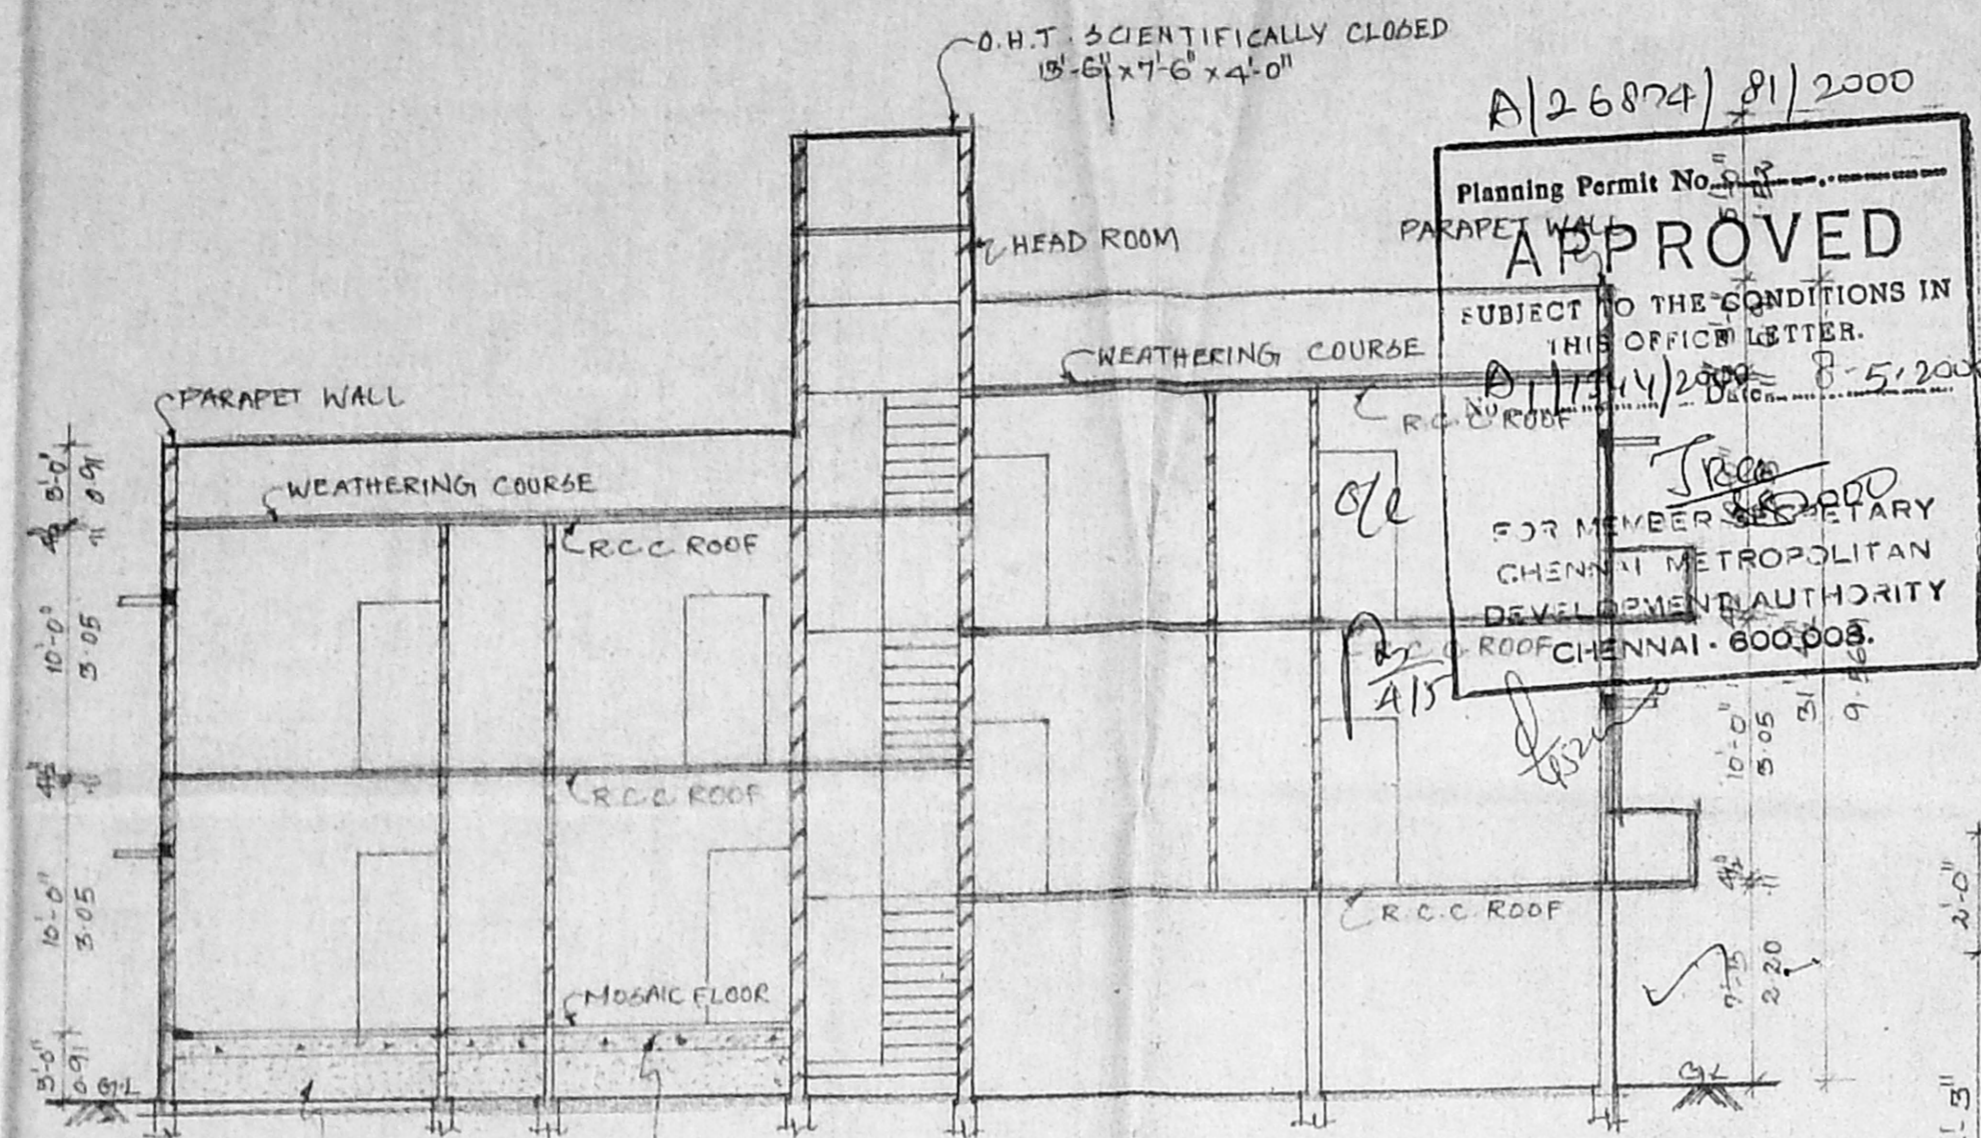 O.H.T. SCIENTIFICALLY CLOSED
13'-6" x 7'-6" x 4'-0"
A/26874/81/2000
Planning Permit No.
APPROVED
SUBJECT TO THE CONDITIONS IN
THIS OFFICE LETTER.
No. /2000 Date 8-5-2000
FOR MEMBER-SECRETARY
CHENNAI METROPOLITAN
DEVELOPMENT AUTHORITY
CHENNAI - 600 008.
HEAD ROOM
PARAPET WALL
WEATHERING COURSE
R.C.C ROOF
PARAPET WALL
WEATHERING COURSE
R.C.C ROOF
O/C
R.C.C ROOF
4/5
R.C.C ROOF
R.C.C ROOF
MOSAIC FLOOR
3'-0"
0.91
4½"
.11
10'-0"
3.05
4½"
.11
10'-0"
3.05
3'-0"
0.91
G.L
10'-0"
3.05
31'
4½"
.11
2.20
G.L
2'-0"